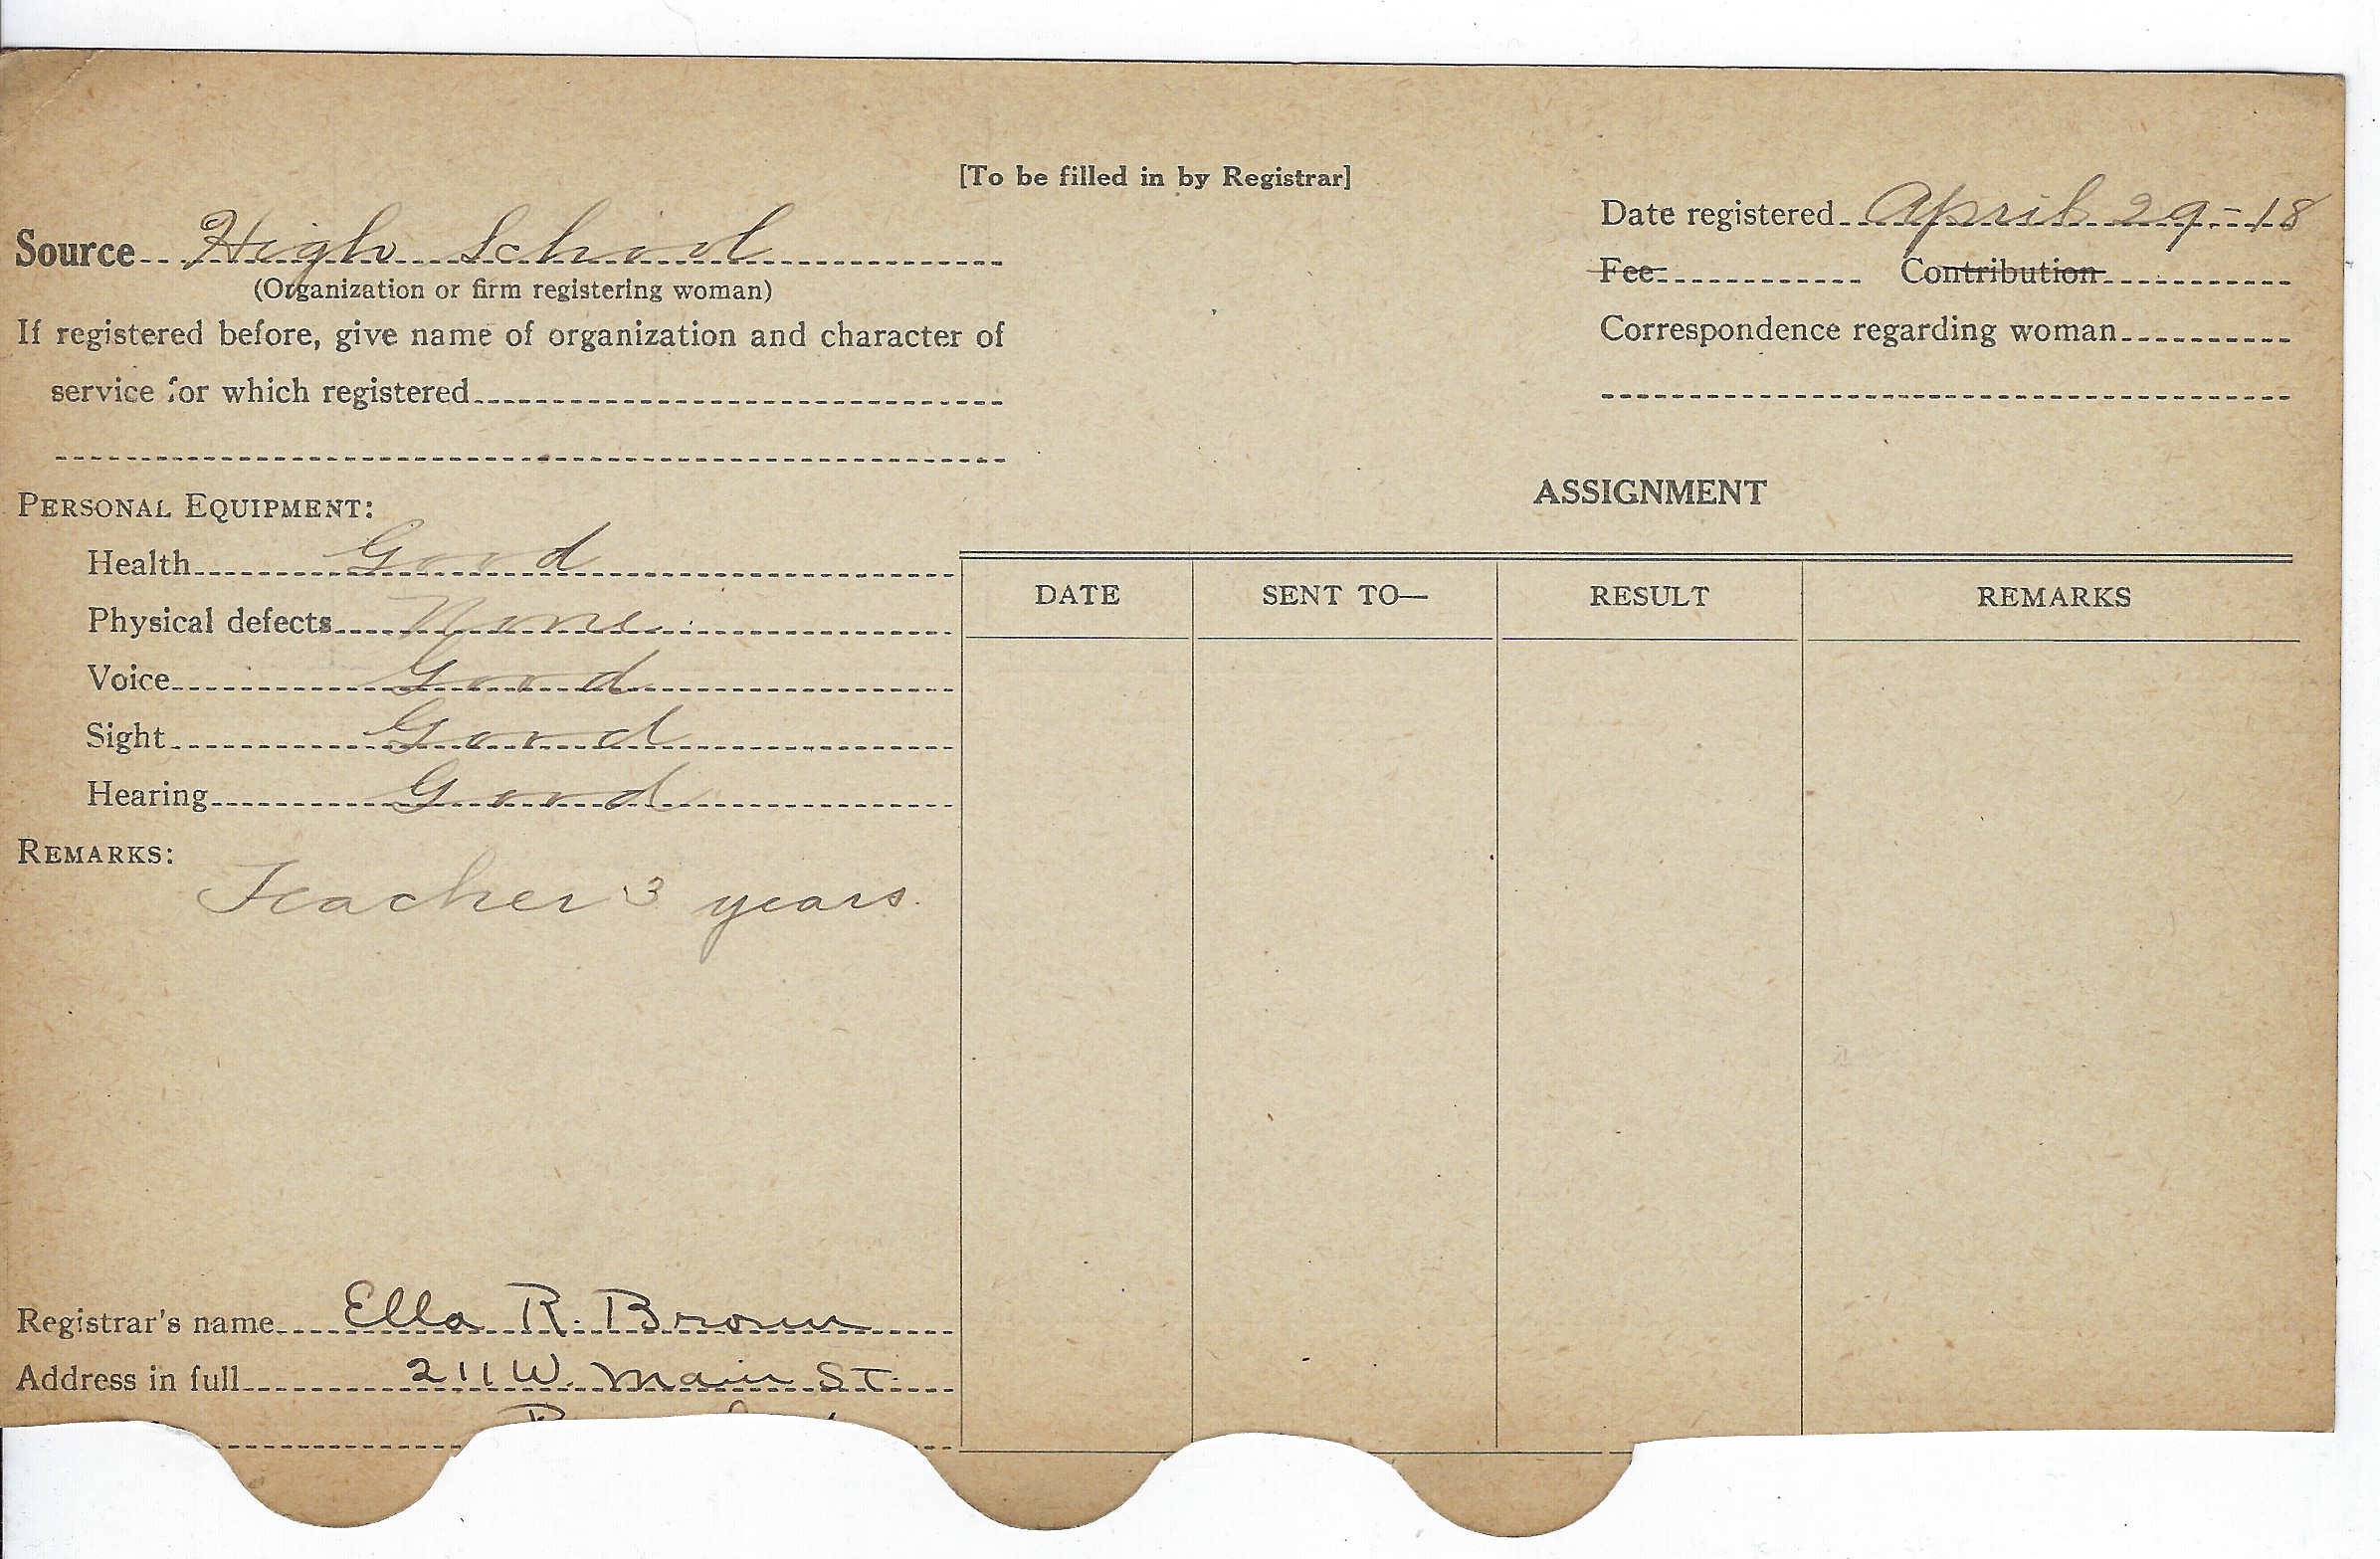 [To be filled in by Registrar]
Source High School
(Organization or firm registering woman)
If registered before, give name of organization and character of
service for which registered
Date registered April 29-18
Fee Contribution
Correspondence regarding woman
PERSONAL EQUIPMENT:
Health Good
Physical defects None
Voice Good
Sight Good
Hearing Good
REMARKS:
Teacher 3 years.
Registrar's name Ella R. Brown
Address in full 211 W. Main St.
ASSIGNMENT
DATE SENT TO— RESULT REMARKS